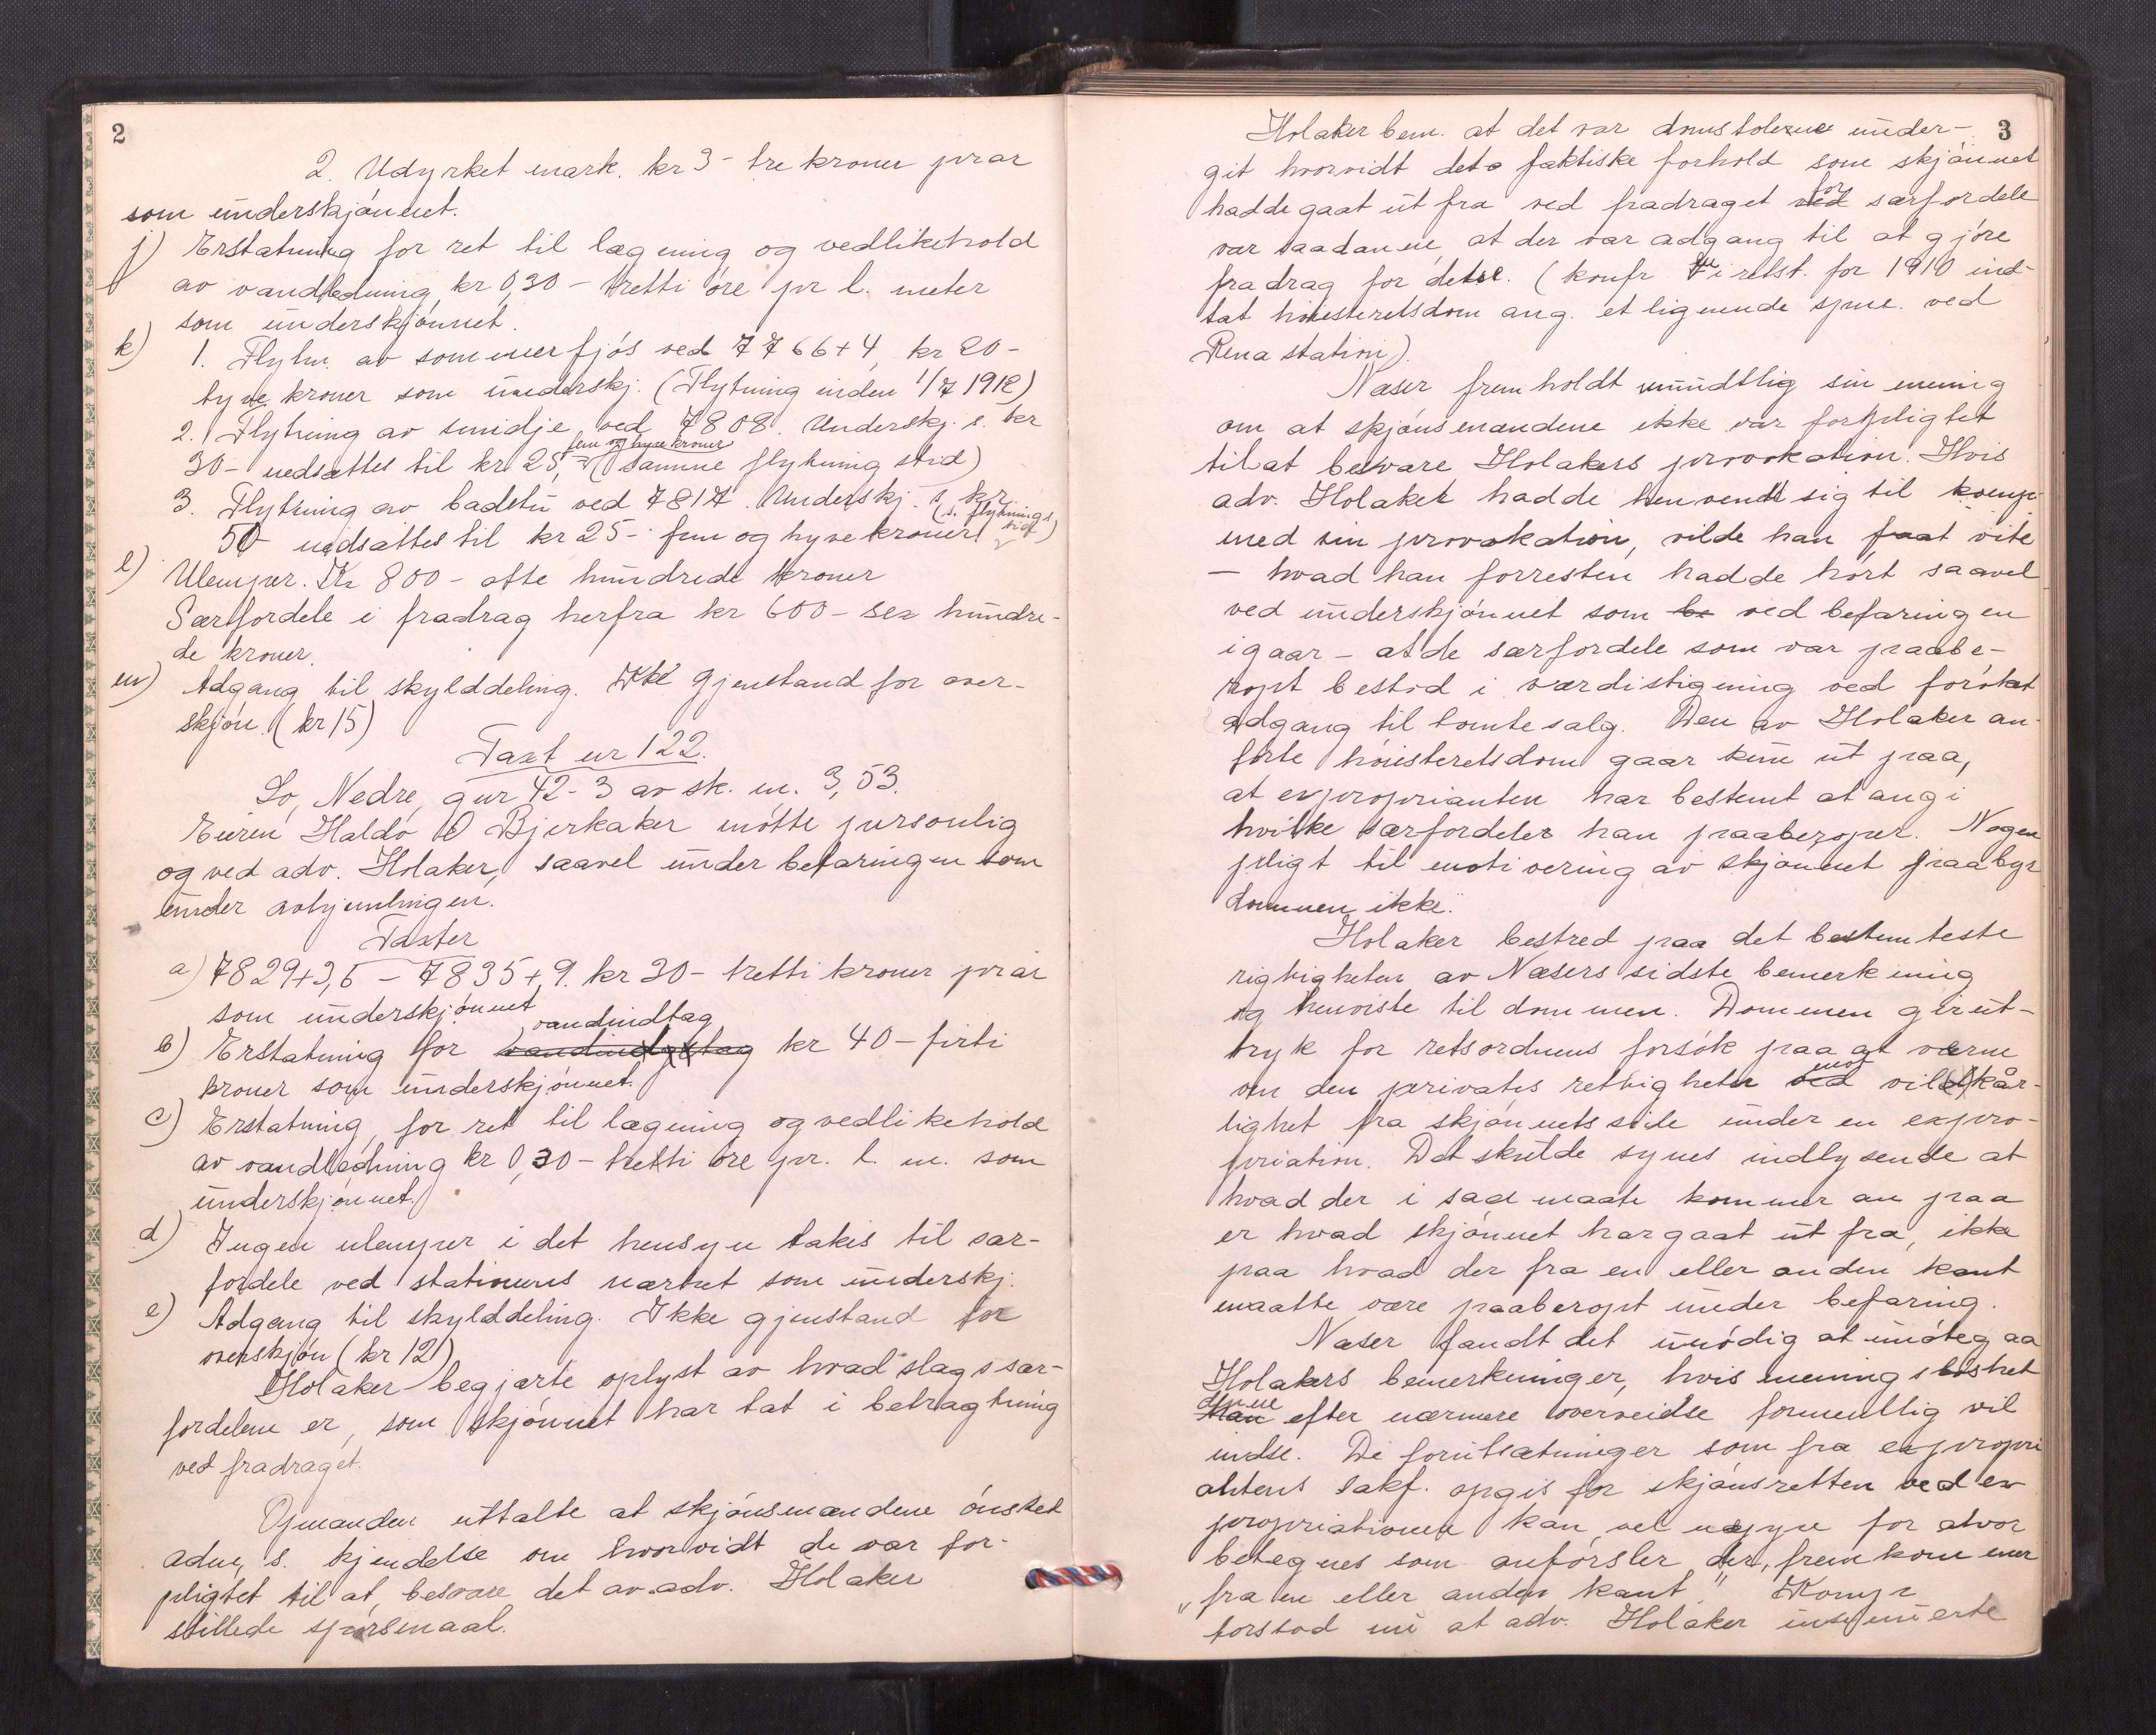 2
2. Udyrket mark. kr 3 - tre kroner pr ar
som underskjønnet.
j) Erstatning for ret til lægning og vedlikehold
av vandledning, kr 0,30 - tretti øre pr l. meter
som underskjønnet.
k) 1. Flytn. av sommerfjøs ved 7766+4, kr 20-
tyve kroner som underskj. (Flytning inden 1/7 1912)
2. Flytning av smidje ved 7808. Underskj. s. kr
fem og tyve kroner
30- nedsættes til kr 25,- (samme flytning stid)
3. Flytning av badstu ved 7817. Underskj. s. kr
(s. flytnings
50 nedsættes til kr 25- fem og tyve kroner tid)
l) Ulemper. Kr 800 - otte hundrede kroner
Særfordele i fradrag herfra kr 600 - sex hundre-
de kroner.
m) Adgang til skylddeling. Ikke gjenstand for over-
skjøn. (kr 15)
Taxt nr 122.
Lo, Nedre, gnr 42-3 av sk. m. 3,53.
Eieren Haldo O Bjerkaker møtte personlig
og ved adv. Holaker, saavel under befaringen som
under avhjemlingen.
Taxter
a) 7829+3,5 - 7835+9. kr 30- tretti kroner pr ar
som underskjønnet
vandindtag
b) Erstatning for vandindgstag kr 40 - firti
kroner som underskjønnet.
c) Erstatning for ret til lægning og vedlikehold
av vandledning kr 0,30 - tretti øre pr. l. m. som
underskjønnet.
d) Ingen ulemper i det hensyn takes til sær-
fordele ved stationens nærhet som underskj.
e) Adgang til skylddeling. Ikke gjenstand for
overskjøn (kr 12)
Holaker begjærte oplyst av hvad slags sær-
fordelene er, som skjønnet har tat i betragtning
ved fradraget.
Opmanden uttalte at skjønsmændene ønsket
adm. s. kjendelse om hvorvidt de var for-
pligtet til at besvare det av adv. Holaker
stillede spørsmaal.
3
Holaker bem. at det var domstolerne under-
git hvorvidt det faktiske forhold som skjønnet
for
hadde gaat ut fra ved fradraget ved særfordele
var saadanne, at der var adgang til at gjøre
fradrag for dette. (konfr en i retst. for 1910 ind-
tat høiesteretsdom ang. et lignende spm. ved
Rena station).
Næser fremholdt mundtlig sin mening
om at skjønsmændene ikke var forpligtet
til at besvare Holakers provokation. Hvis
adv. Holaker hadde henvendt sig til komp.
med sin provokation, vilde han faat vite
- hvad han forresten hadde hørt saavel
ved underskjønnet som be ved befaringen
igaar - at de særfordele som var paabe-
ropt bestod i værdistigning ved forøket
adgang til tomtesalg. Den av Holaker an-
førte høiesteretsdom gaar kun ut paa,
at exproprianten har bestemt at angi
hvilke særfordeler han paaberoper. Nogen
pligt til motivering av skjønnet paabyr
dommen ikke.
Holaker bestred paa det bestemteste
rigtigheten av Næsers sidste bemerkning
og henviste til dommen. Dommen gir ut-
tryk for retsordnens forsøk paa at verne
mot
om den privates rettigheter ved vilkår-
lighet fra skjønnets side under en expro-
priation. Det skulde synes indlysende at
hvad der i saa maate kommer an paa
er hvad skjønnet har gaat ut fra, ikke
paa hvad der fra en eller anden kant
maatte være paaberopt under befaring.
Næser fandt det unødig at imøtegaa
Holakers bemerkninger, hvis meningsløshet
denne
han efter nærmere overveielse formentlig vil
indse. De forutsætninger som fra expropri
antens sakf. opgis for skjønsretten ved ex
propriationen kan vel neppe for alvor
betegnes som anførsler der, fremkommer
"fra en eller anden kant." Komp.
forstod nu at adv. Holaker insinuerte